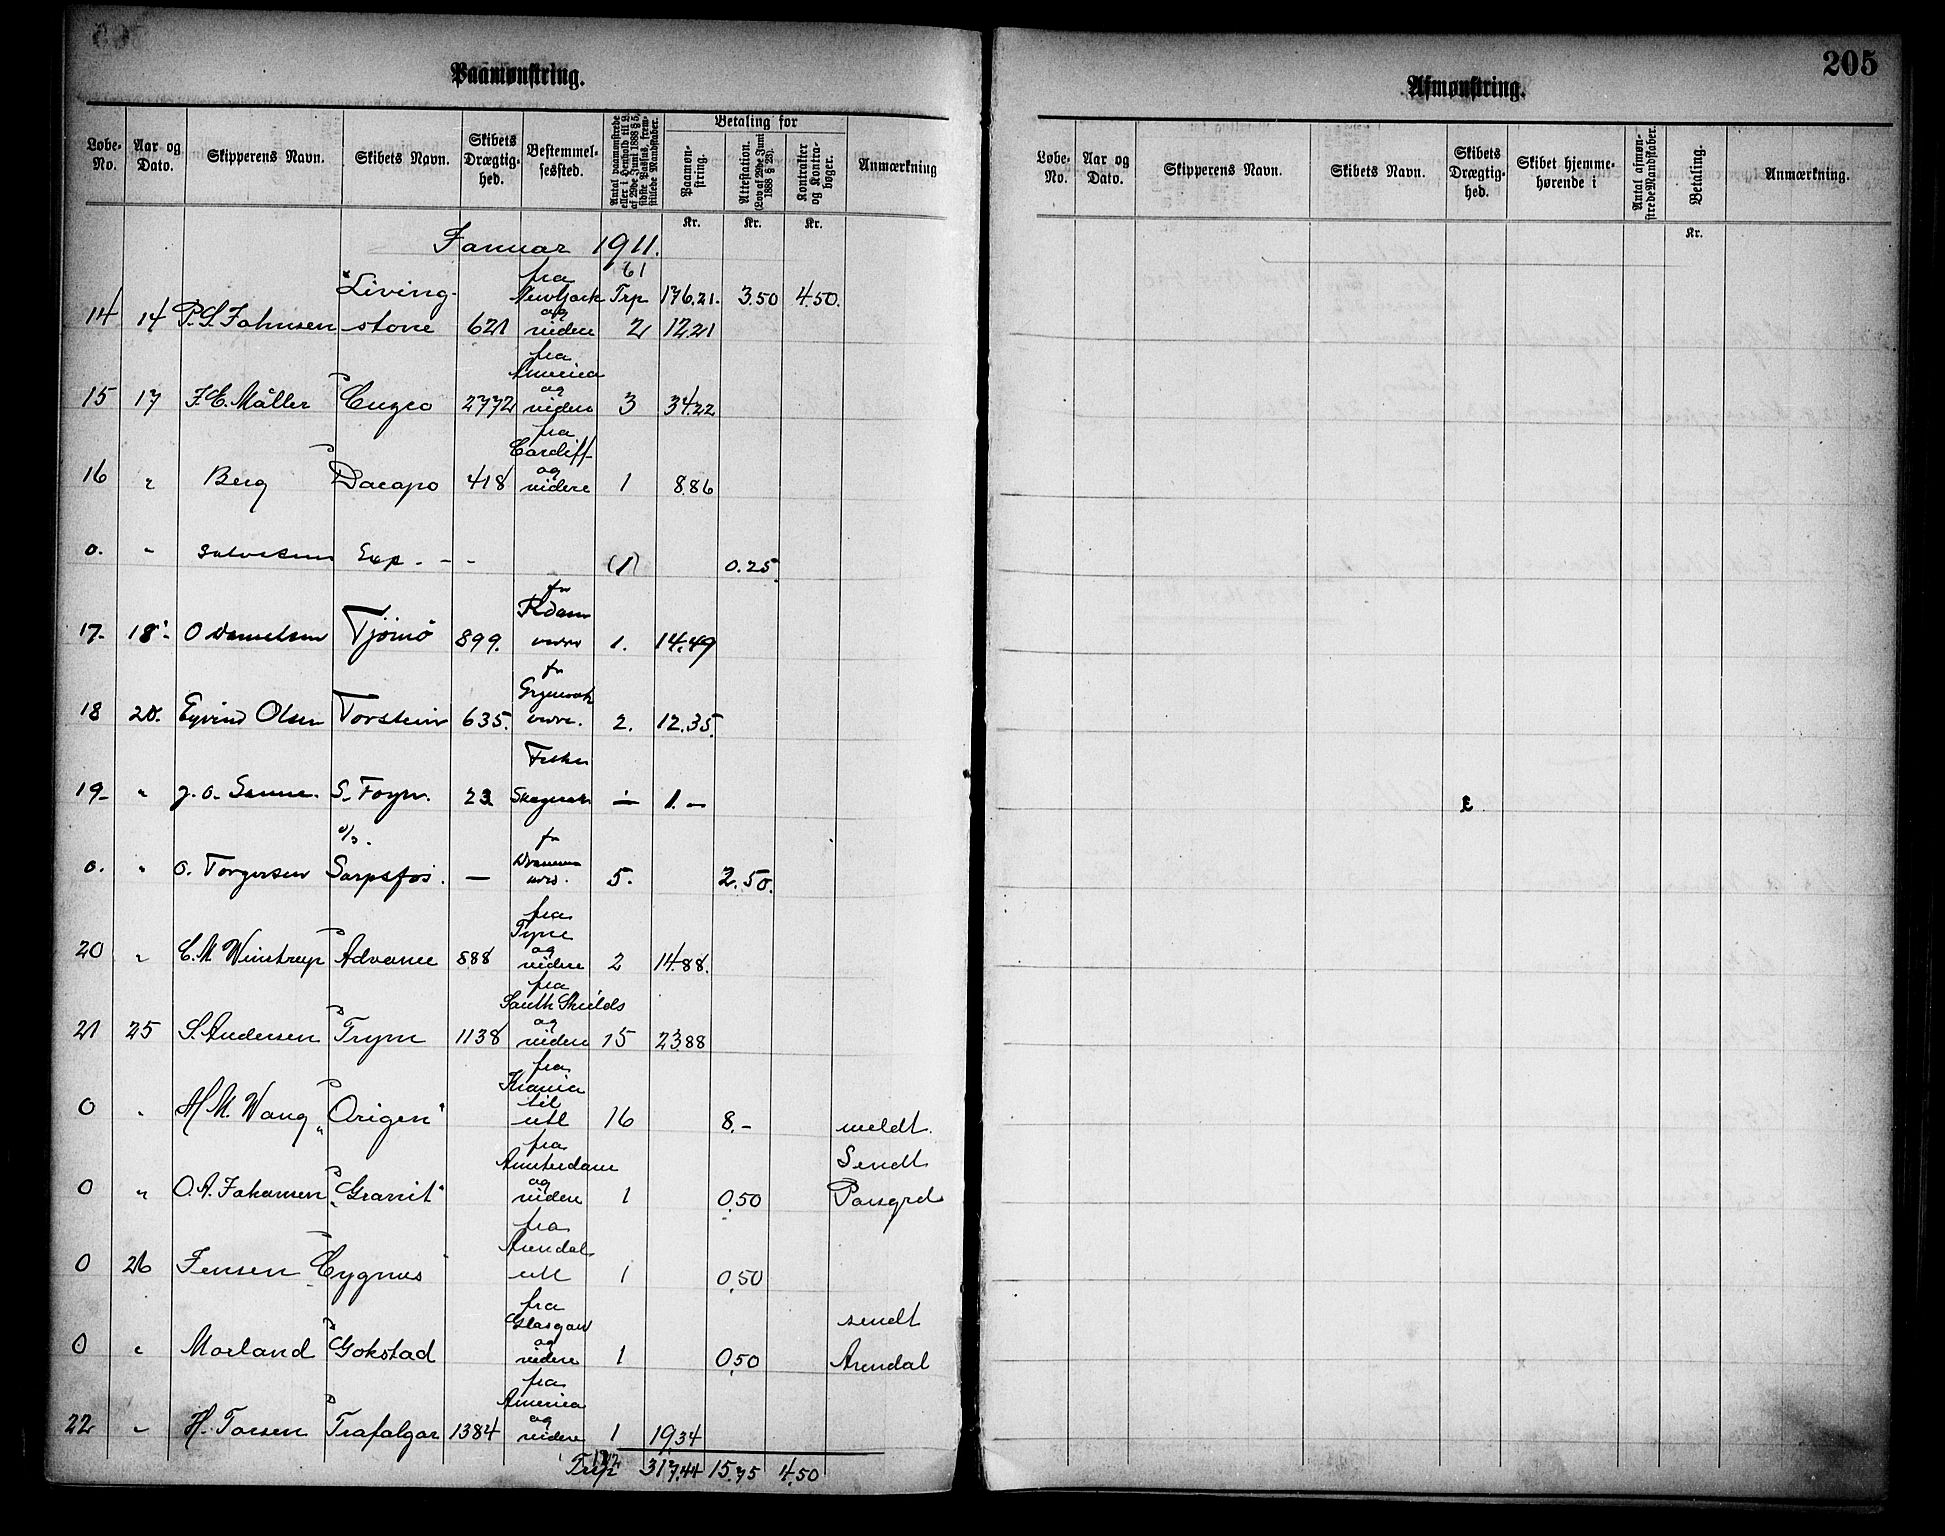 Paamønstring.
Løbe-No. Aar og Dato. Skipperens Navn. Skibets Navn. Skibets Drægtighed. Bestemmelsessted. Antal paamønstrede eller i Henhold til L. af 29de Juni 1888 § 5, sidste Passus, fremstillede Mandskaber. Betaling for Paamønstring. Attestation. (Lov af 29de Juni 1888 § 25). Kontrakter og Kontrabøger. Anmærkning
Kr. Kr. Kr.
Januar 1911.
fra 61
"Living- NewYork Trp 176.21. 3.50 4.50.
og
14 14 P. S. Johnsen stone 621 videre 2 12.21
fra
America
og
15 17 J. E. Møller Cuzco 2772 videre 3 34.22
fra
Cardiff
og
16 " Berg Dacapo 418 videre 1 8.86
0. " Salvesen Exp. - - (1) 0.25
fr
Rdam
17- 18- O Danielsen Tjømø 899. videre 1. 14.49
fr
18 20. Eyvind Olsen Torstein 635. videre. 2. 12.35.
19- " J. O. Sanne. S. Foyn. 23 Skagerak ÷ 1.-
fr
0. " O. Torgersen Sarpsfos. — 5. 2.50.
fra
Tyne
og
20 " C. M Winstrup Advance 888 videre 2 14.88.
fra
South Shields
og
21 25 S. Andersen Trym 1138 videre 15 23.88
fra
Krania
til
0 " H M. Wang "Origen" utl 16 8.- meldt.
fra
Amsterdam Sendt
og
0 " O. A. Johansen "Granit" videre 1 0.50 Porsgrd
fra
Arendal
0 26 Jensen Cygnus utl 1 0.50
fra
Glasgow sendt
og
0 " Morland Gokstad videre 1 0.50 Arendal
fra
America
og
22 " H. Torsen Trafalgar 1384 videre 1 19.34
Trp 317.44 15.75 4.50
205
Afmønstring.
Løbe-No. Aar og Dato. Skipperens Navn. Skibets Navn. Skibets Drægtighed. Skibet hjemmehørende i Antal afmønstrede Mandskaber. Betaling. Anmærkning.
Kr.